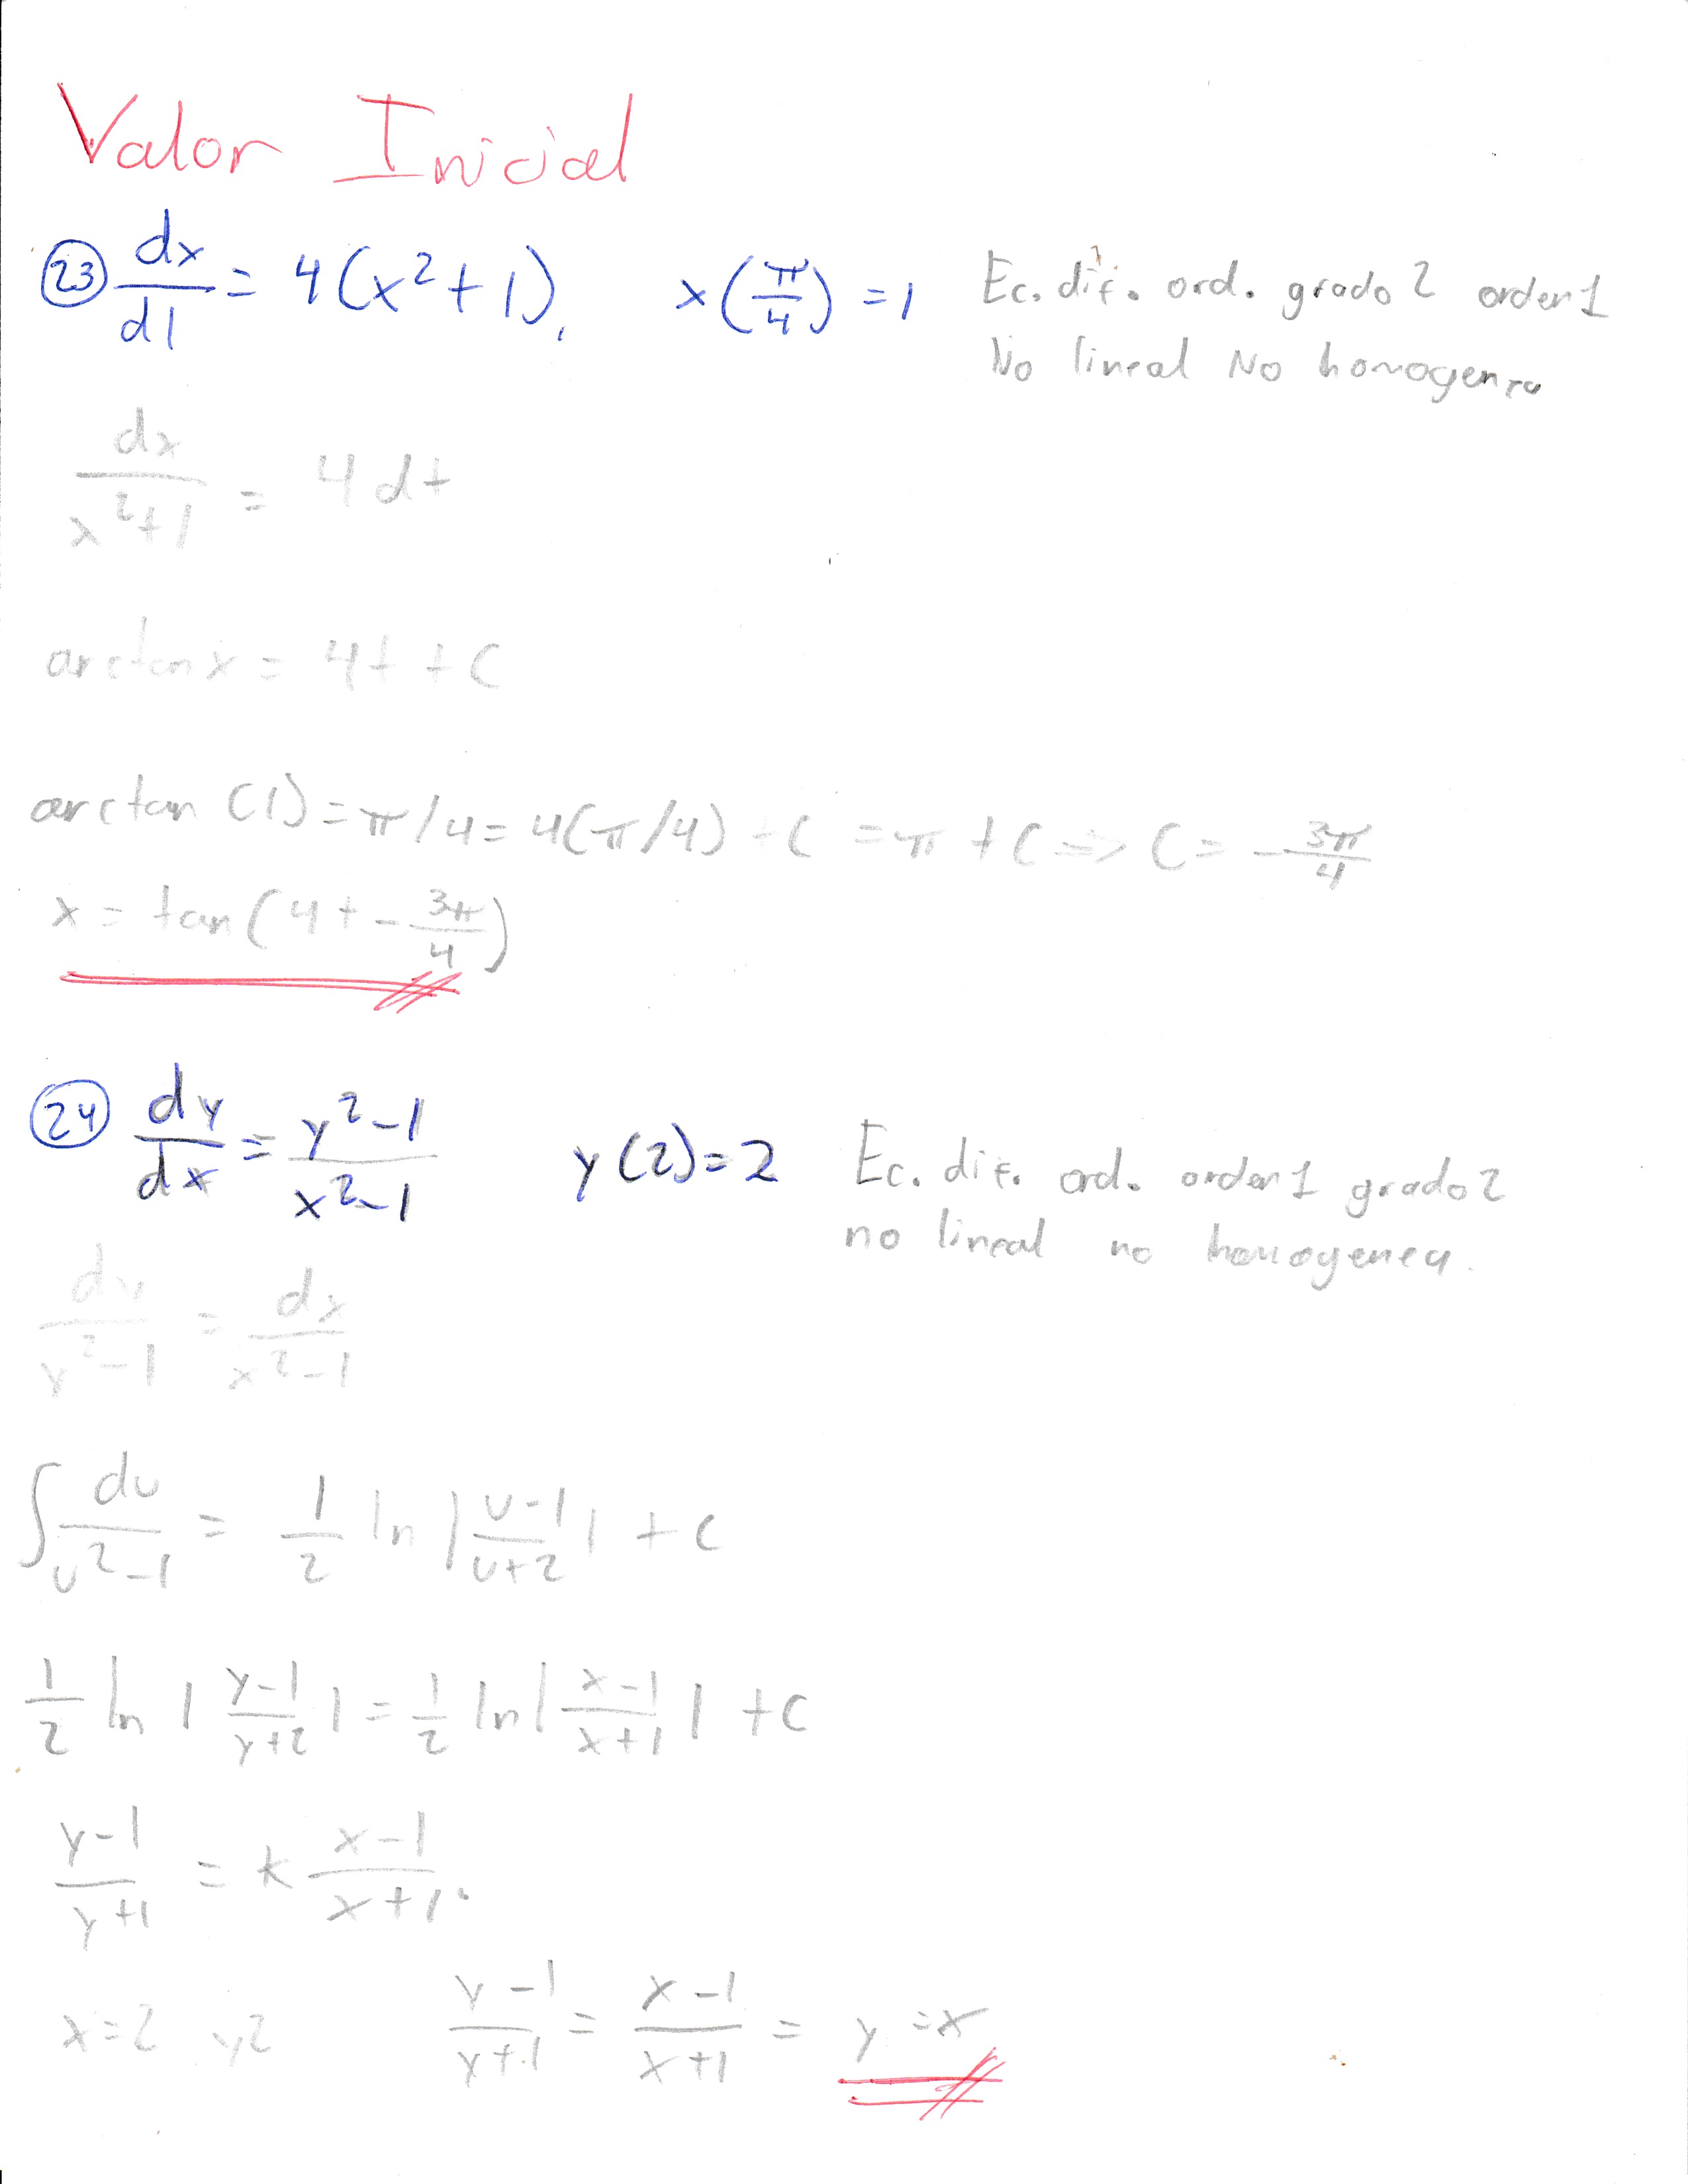 Valor Inicial
23 dx/dt = 4(x²+1), x(π/4) = 1 Ec. dif. ord. grado 2 orden 1
No lineal No homogenea
dx/x²+1 = 4dt
arctan x = 4t + C
arctan (1) = π/4 = 4(π/4) + C = π + C => C = -3π/4
x = tan(4t - 3π/4)
24 dy/dx = y²-1/x²-1 y(2)=2 Ec. dif. ord. orden 1 grado 2
no lineal no homogenea.
dy/y²-1 = dx/x²-1
∫du/u²-1 = 1/2 ln |u-1/u+2| + c
1/2 ln |y-1/y+2| = 1/2 ln |x-1/x+1| + c
y-1/y+1 = k x-1/x+1.
x=2 y2 y-1/y+1 = x-1/x+1 = y=x